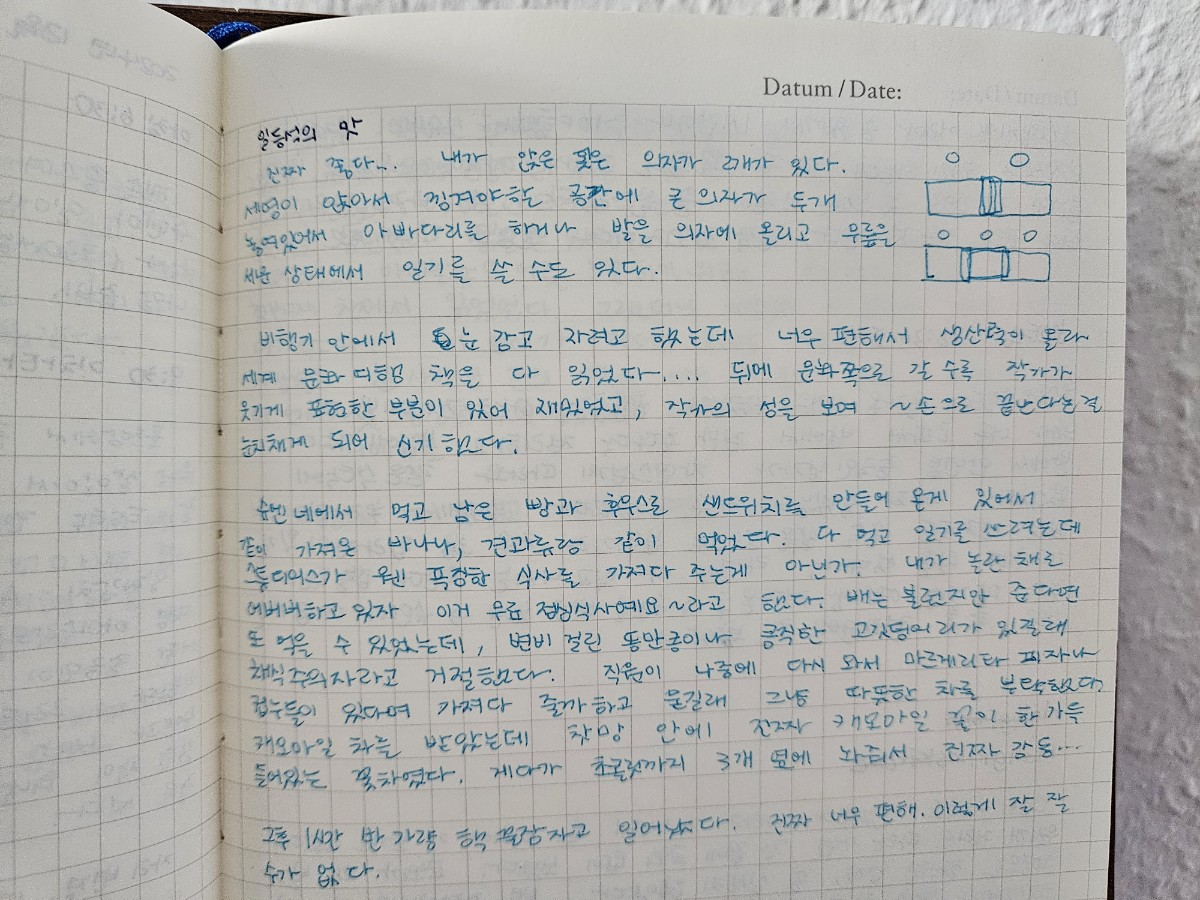 Datum / Date:
일등석의 맛
진짜 좋다... 내가 앉은 넓은 의자가 2개가 있다.
세명이 앉아서 낑겨야하는 공간에 큰 의자가 두개
놓여있어서 아빠다리를 하거나 발을 의자에 올리고 무릎을
세운 상태에서 일기를 쓸 수도 있다.
비행기 안에서 눈 감고 자려고 했는데 너무 편해서 생산력이 올라
세계 문화 여행 책을 다 읽었다.... 뒤에 문화쪽으로 갈 수록 작가가
웃기게 표현한 부분이 있어 재밌었고, 작가의 성을 보며 ~손으로 끝난다는걸
눈치채게 되어 신기했다.
슈벤네에서 먹고 남은 빵과 후무스로 샌드위치를 만들어 온게 있어서
같이 가져온 바나나, 견과류랑 같이 먹었다. 다 먹고 일기를 쓰려는데
스튜디어스가 웬 푹짐한 식사를 가져다 주는게 아닌가. 내가 놀란 채로
어버버하고 있자 이거 무료 점심식사예요~라고 했다. 배는 불렀지만 준다면
또 먹을 수 있었는데, 변비 걸린 똥만콩이나 큼직한 고깃덩어리가 있길래
채식주의자라고 거절했다. 직원이 나중에 다시 와서 마르게리타 피자나
컵누들이 있다며 가져다 줄까 하고 묻길래 그냥 따뜻한 차를 부탁했다.
캐모마일 차를 받았는데 찻망 안에 진짜 캐모마일 꽃이 한가득
들어있는 꽃차였다. 게다가 초콜릿까지 3개 옆에 놔줘서 진짜 감동...
그후 1시간 반 가량 꿀잠자고 일어났다. 진짜 너무 편해. 이렇게 잘 잘
수가 없다.